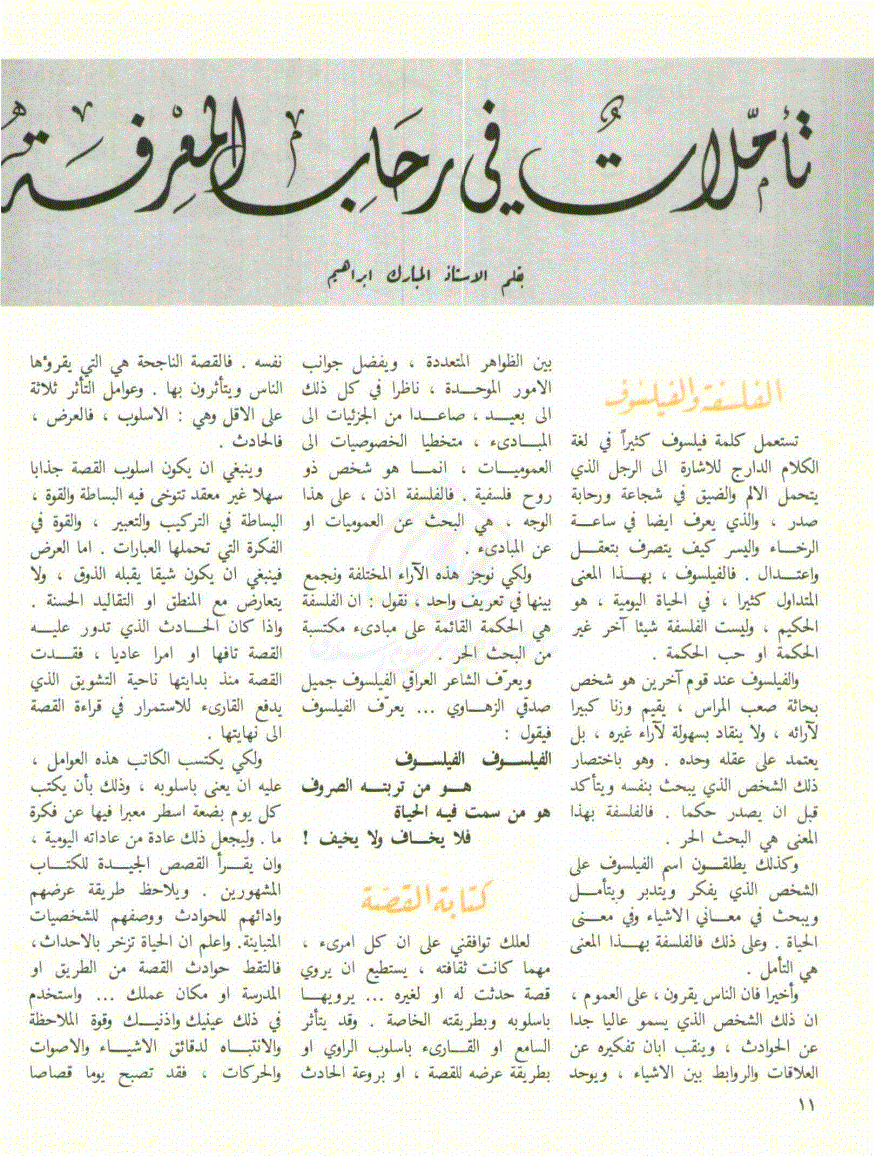 تأمّلاتٌ في رحَابِ المعْرِفَة
بقلم الاستاذ المبارك ابراهيم
الفلسفة والفيلسوف
تستعمل كلمة فيلسوف كثيراً في لغة
الكلام الدارج للاشارة الى الرجل الذي
يتحمل الالم والضيق في شجاعة ورحابة
صدر ، والذي يعرف ايضا في ساعـــة
الرخـــاء واليسر كيف يتصرف بتعقـــل
واعتـــدال . فالفيلسوف ، بهـــذا المعنى
المتداول كثيرا ، في الحياة اليومية ، هو
الحكيم ، وليست الفلسفة شيئا آخر غير
الحكمة او حب الحكمة .
والفيلسوف عند قوم آخرين هو شخص
بحاثة صعب المراس ، يقيم وزنا كبيرا
لآرائه ، ولا ينقاد بسهولة لآراء غيره ، بل
يعتمد على عقله وحده . وهو باختصار
ذلك الشخص الذي يبحث بنفسه ويتأكد
قبل ان يصدر حكما . فالفلسفة بهذا
المعنى هي البحث الحر .
وكذلك يطلقـــون اسم الفيلسوف على
الشخص الذي يفكر ويتدبر ويتأمـــل
ويبحث في معـــاني الاشياء وفي معـــنى
الحياة . وعلى ذلك فالفلسفة بهـــذا المعنى
هي التأمل .
وأخيرا فان الناس يقرون ، على العموم ،
ان ذلك الشخص الذي يسمو عاليا جدا
عن الحوادث ، وينقب ابان تفكيره عن
العلاقات والروابط بين الاشياء ، ويوحد
بين الظواهر المتعددة ، ويفضل جوانب
الامور الموحـــدة ، ناظرا في كل ذلك
الى بعيـــد ، صاعـــدا من الجزئيات الى
المبـــادىء ، متخطيا الخصوصيات الى
العموميـــات ، انمـــا هو شخص ذو
روح فلسفية . فالفلسفة اذن ، على هذا
الوجه ، هي البحث عن العموميات او
عن المبادىء .
ولكي نوجز هذه الآراء المختلفة ونجمع
بينها في تعريف واحد ، نقول : ان الفلسفة
هي الحكمة القائمة على مبادىء مكتسبة
من البحث الحر .
ويعرّف الشاعر العراقي الفيلسوف جميل
صدقي الزهـــاوي ... يعرّف الفيلسوف
فيقول :
الفيلسـوف الفيلسـوف
هـــو من تربتـــه الصروف
هو من سمت فيـه الحياة
فلا يخـــاف ولا يخيف !
كتابة القصة
لعلك توافقني على ان كل امرىء ،
مهما كانت ثقافته ، يستطيع ان يروي
قصة حدثت له او لغيره ... يرويهـــا
باسلوبه وبطريقته الخاصة . وقد يتأثر
السامع او القـــارىء باسلوب الراوي او
بطريقة عرضه للقصة ، او بروعة الحادث
نفسه . فالقصة الناجحة هي التي يقرؤها
الناس ويتأثرون بها . وعوامل التأثر ثلاثة
على الاقل وهي : الاسلوب ، فالعرض ،
فالحادث .
وينبغي ان يكون اسلوب القصة جذابا
سهلا غير معقد تتوخى فيه البساطة والقوة ،
البساطة في التركيب والتعبير ، والقوة في
الفكرة التي تحملها العبارات . اما العرض
فينبغي ان يكون شيقا يقبله الذوق ، ولا
يتعارض مع المنطق او التقاليد الحسنة .
واذا كان الحـــادث الذي تدور عليـــه
القصة تافها او امرا عاديا ، فقـــدت
القصة منذ بدايتها ناحية التشويق الذي
يدفع القارىء للاستمرار في قراءة القصة
الى نهايتها .
ولكي يكتسب الكاتب هذه العوامل ،
عليه ان يعنى باسلوبه ، وذلك بأن يكتب
كل يوم بضعة اسطر معبرا فيها عن فكرة
ما . وليجعل ذلك عادة من عاداته اليومية ،
وان يقـــرأ القصص الجيـــدة للكتـــاب
المشهورين . ويلاحظ طريقة عرضهم
وادائهم للحوادث ووصفهم للشخصيات
المتباينة. واعلم ان الحياة تزخر بالاحداث،
فالتقط حوادث القصة من الطريق او
المدرسة او مكان عملك ... واستخدم
في ذلك عينيك واذنيـــك وقوة الملاحظة
والانتبـــاه لدقائق الاشيـــاء والاصوات
والحركات ، فقد تصبح يوما قصاصا
١١